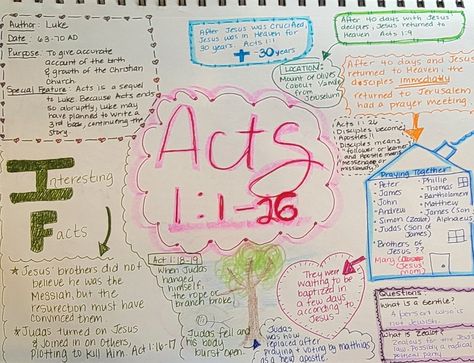 Author: Luke
Date: 63-70 AD
Purpose: To give accurate
account of the birth
& growth of the Christian
Church
Special Feature: Acts is a sequel
to Luke. Because Acts ends
so abruptly, Luke may
have planned to write a
3rd book, continuing the
story
After Jesus was crucified,
Jesus was in Heaven for
30 years. Acts 1:1
30 years
After 40 days with Jesus
Jesus returned to
Heaven Acts 1:9
LOCATION:
Mount of Olives
(about
from
Jerusalem)
After 40 days and Jesus
returned to Heaven the
disciples immediately
returned to Jerusalem
had a prayer meeting.
Acts
1:1-26
Acts 1:26
Disciples become
Apostles!!
Disciples means
"follower or learner"
and Apostle means
messenger or
missionary"
Praying Together
Peter
James
John
Andrew
Simon (Zealot)
Judas (Son of
James)
Brothers of
Jesus ??
Mary (Jesus'
mom)
Phillip
Thomas
Bartholomew
Matthew
James (Son
Alphaeus
Interesting
Facts
Jesus' brothers did not
believe he was the
Messiah, but the
resurrection must have
convinced them.
Judas turned on Jesus
& joined in on others
plotting to Kill Him. Act 1:16-17
Act 1:18-19
When Judas
hanged
himself,
the rope or
branch broke
Judas fell and
his body
burst open.
They were
waiting to be
baptized in
a few days
according to
Jesus
Judas was
replaced after
praying & voting by Matthias
as a new apostle
Questions
What is a Gentile?
A person who is
not Jewish
What is Zealot?
Zealous for the Jewish
Possibly a radical
political party